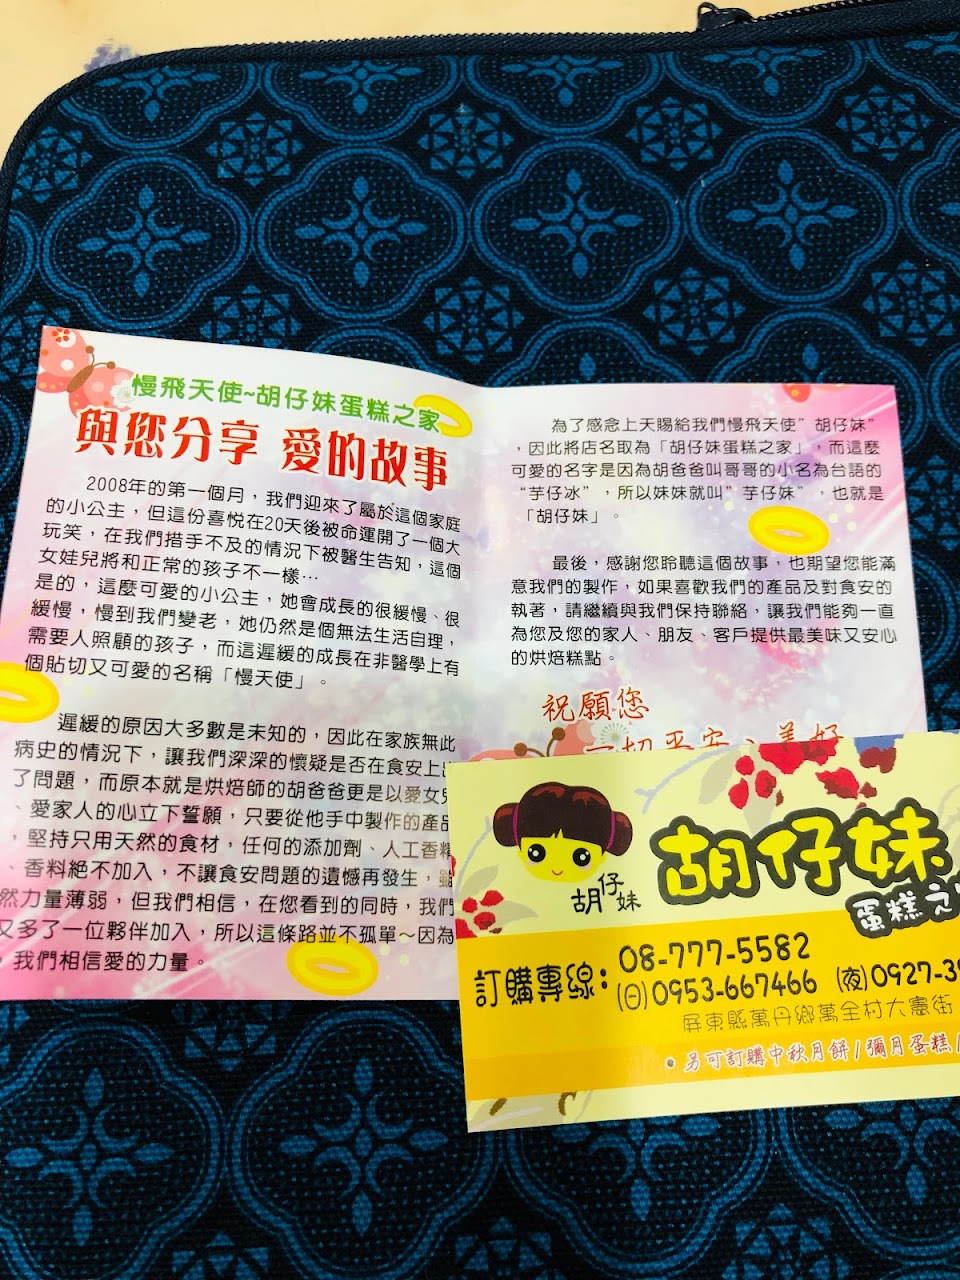 慢飛天使~胡仔妹蛋糕之家
與您分享 愛的故事
2008年的第一個月，我們迎來了屬於這個家庭
的小公主，但這份喜悅在20天後被命運開了一個大
玩笑，在我們措手不及的情況下被醫生告知，這個
女娃兒將和正常的孩子不一樣…
是的，這麼可愛的小公主，她會成長的很緩慢、很
緩慢，慢到我們變老，她仍然是個無法生活自理，
需要人照顧的孩子，而這遲緩的成長在非醫學上有
個貼切又可愛的名稱「慢天使」。
遲緩的原因大多數是未知的，因此在家族無此
病史的情況下，讓我們深深的懷疑是否在食安上出
了問題，而原本就是烘焙師的胡爸爸更是以愛女兒
、愛家人的心立下誓願，只要從他手中製作的產品
，堅持只用天然的食材，任何的添加劑、人工香精
、香料絕不加入，不讓食安問題的遺憾再發生，雖
然力量薄弱，但我們相信，在您看到的同時，我們
又多了一位夥伴加入，所以這條路並不孤單～因為
，我們相信愛的力量。
為了感念上天賜給我們慢飛天使”胡仔妹”
，因此將店名取為「胡仔妹蛋糕之家」，而這麼
可愛的名字是因為胡爸爸叫哥哥的小名為台語的
“芋仔冰”，所以妹妹就叫”芋仔妹”，也就是
「胡仔妹」。
最後，感謝您聆聽這個故事，也期望您能滿
意我們的製作，如果喜歡我們的產品及對食安的
執著，請繼續與我們保持聯絡，讓我們能夠一直
為您及您的家人、朋友、客戶提供最美味又安心
的烘焙糕點。
祝願您
一切平安、美好
胡仔妹
胡仔妹
蛋糕之
訂購專線：
08-777-5582
(日)0953-667466 (夜)0927-3
屏東縣萬丹鄉萬全村大憲街
•另可訂購中秋月餅/彌月蛋糕/